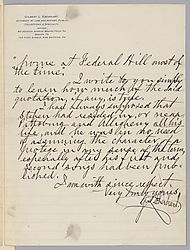 GILBERT L. EBERHART,
ATTORNEY AT LAW AND NOTARY PUBLIC
home at Federal Hill most of
the time.
I write to you simply
to learn how much of the said
quotation, if any, is true.
I had always supposed that
Stephen had resided in, or near
Pittsburg and Allegheny all his
life, and he was in no need
of assuming the character of
protege in any sense of the term,
especially after his first and
second songs had been pub-
lished.
I am with sincere respect,
Very truly yours,
Eberhart